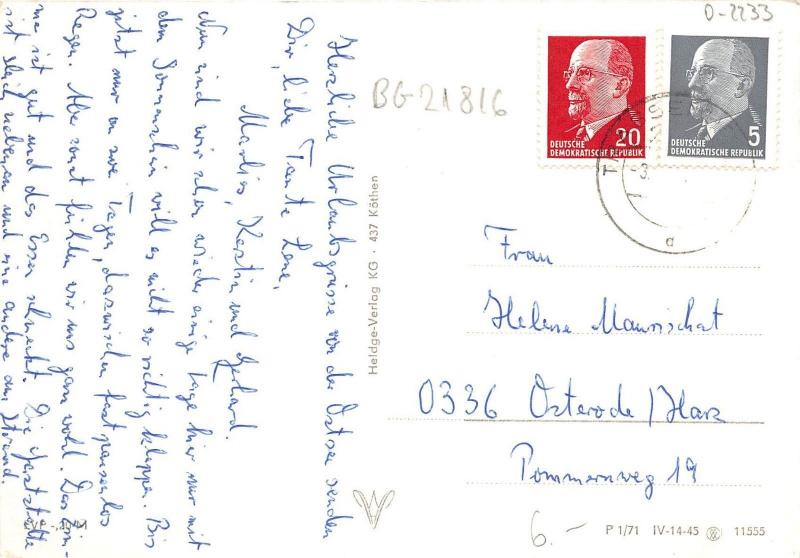 Herzliche Urlaubsgrüsse von der Ostsee senden
Dir, liebe Tante Lene,
Marlies, Kerstin und Gerhard.
Nun sind wir aber wieder einige Tage hier nur mit
dem Sonnenschein will es nicht so richtig klappen. Bis
jetzt nur an zwei Tagen, dazwischen fast pausenlos
Regen. Aber sonst fühlen wir uns ganz wohl. Das
ist gut und das Essen schmeckt. Die Gaststätte
ist gleich nebenan und eine andere am Strand.
EVP
Heldge-Verlag KG · 437 Köthen
BG-21816
0-2233
20
DEUTSCHE
DEMOKRATISCHE REPUBLIK
5
DEUTSCHE
DEMOKRATISCHE REPUBLIK
a
Frau
Helene Maurischat
0336 Osterode/Harz
Pommernweg 19
6.-
P 1/71 IV-14-45 11555